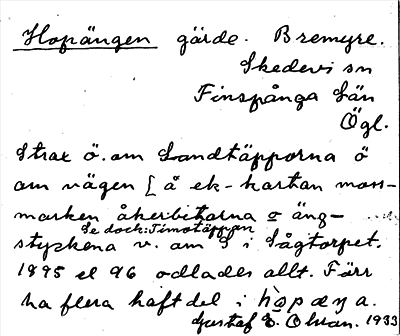 Hopängen gärde. Bremyre.
Skedevi sn
Finspånga Län
Ögl.
Strax ö. om Landtäpporna ö
om vägen [å ek-kartan moss-
marken åkerbitarna o äng-
Se dock: Timotäppan
styckena v. om S i Sågtorpet.
1895 el 96 odlades allt. Förr
ha flera haft del i
Gustaf E. Olsson. 1933